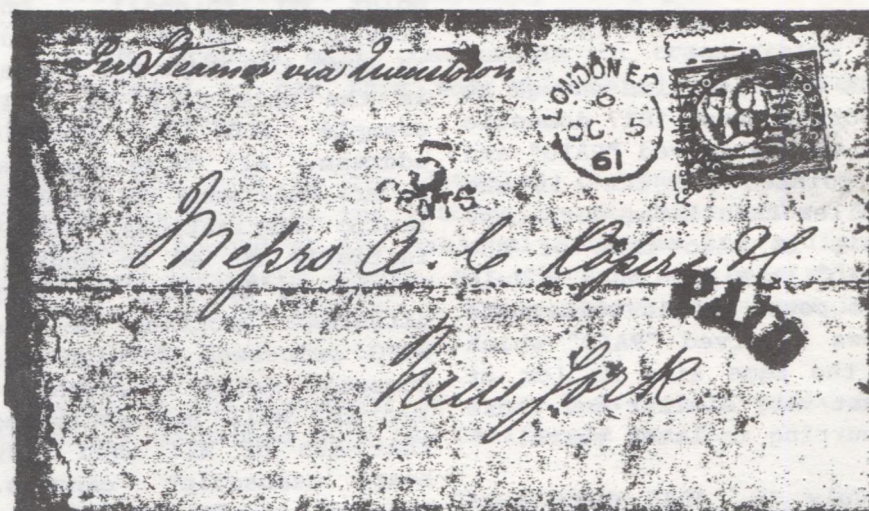 Per Steamer via Queenstown
LONDON E.C
6
OC 5
61
CENTS
Messrs A. C. H.
PAID
New York